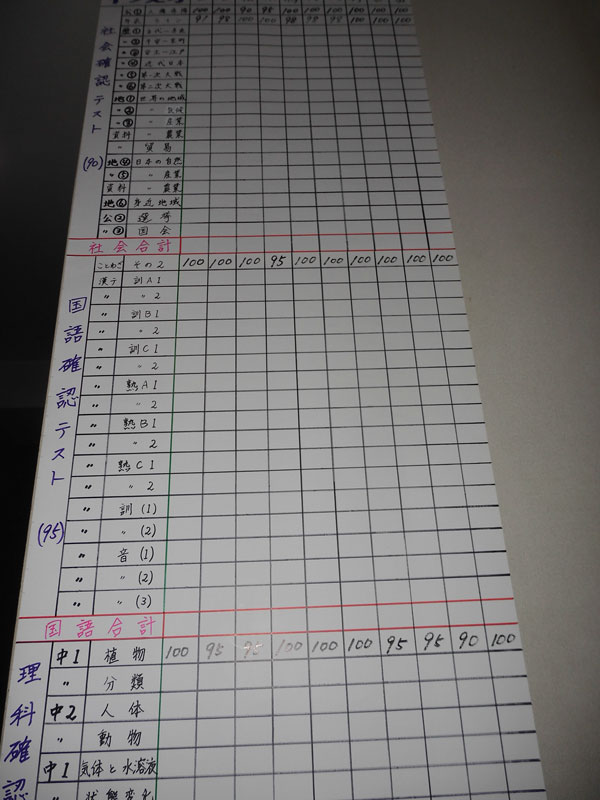 公① 人権尊重 100 100 90 95 100 100 100 100 100 100
97 98 100 100 98 98 100 100 100
社会確認テスト
(90)
歴① 古代～平安
〃②
〃③ 室町～江戸
〃④ 近代日本
〃⑤ 第一次大戦
〃⑥ 第二次大戦
地① 世界の地域
〃② 〃
〃③ 〃 産業
資料 〃 農業
〃 貿易
地④ 日本の自然
〃⑤ 〃 産業
資料 〃 農業
地⑥ 身近地域
公② 選挙
〃③ 国会
社会合計
国語確認テスト
(95)
ことわざ その2 100 100 100 95 100 100 100 100 100 100
漢テ 訓A1
〃 〃 2
〃 訓B1
〃 〃 2
〃 訓C1
〃 〃 2
〃 熟A1
〃 〃 2
〃 熟B1
〃 〃 2
〃 熟C1
〃 〃 2
〃 訓(1)
〃 〃(2)
〃 音(1)
〃 〃(2)
〃 〃(3)
国語合計
理科確認
中1 植物 100 95 95 100 100 100 95 95 90 100
〃 分類
中2 人体
〃 動物
中1 気体と水溶液
〃 状態変化